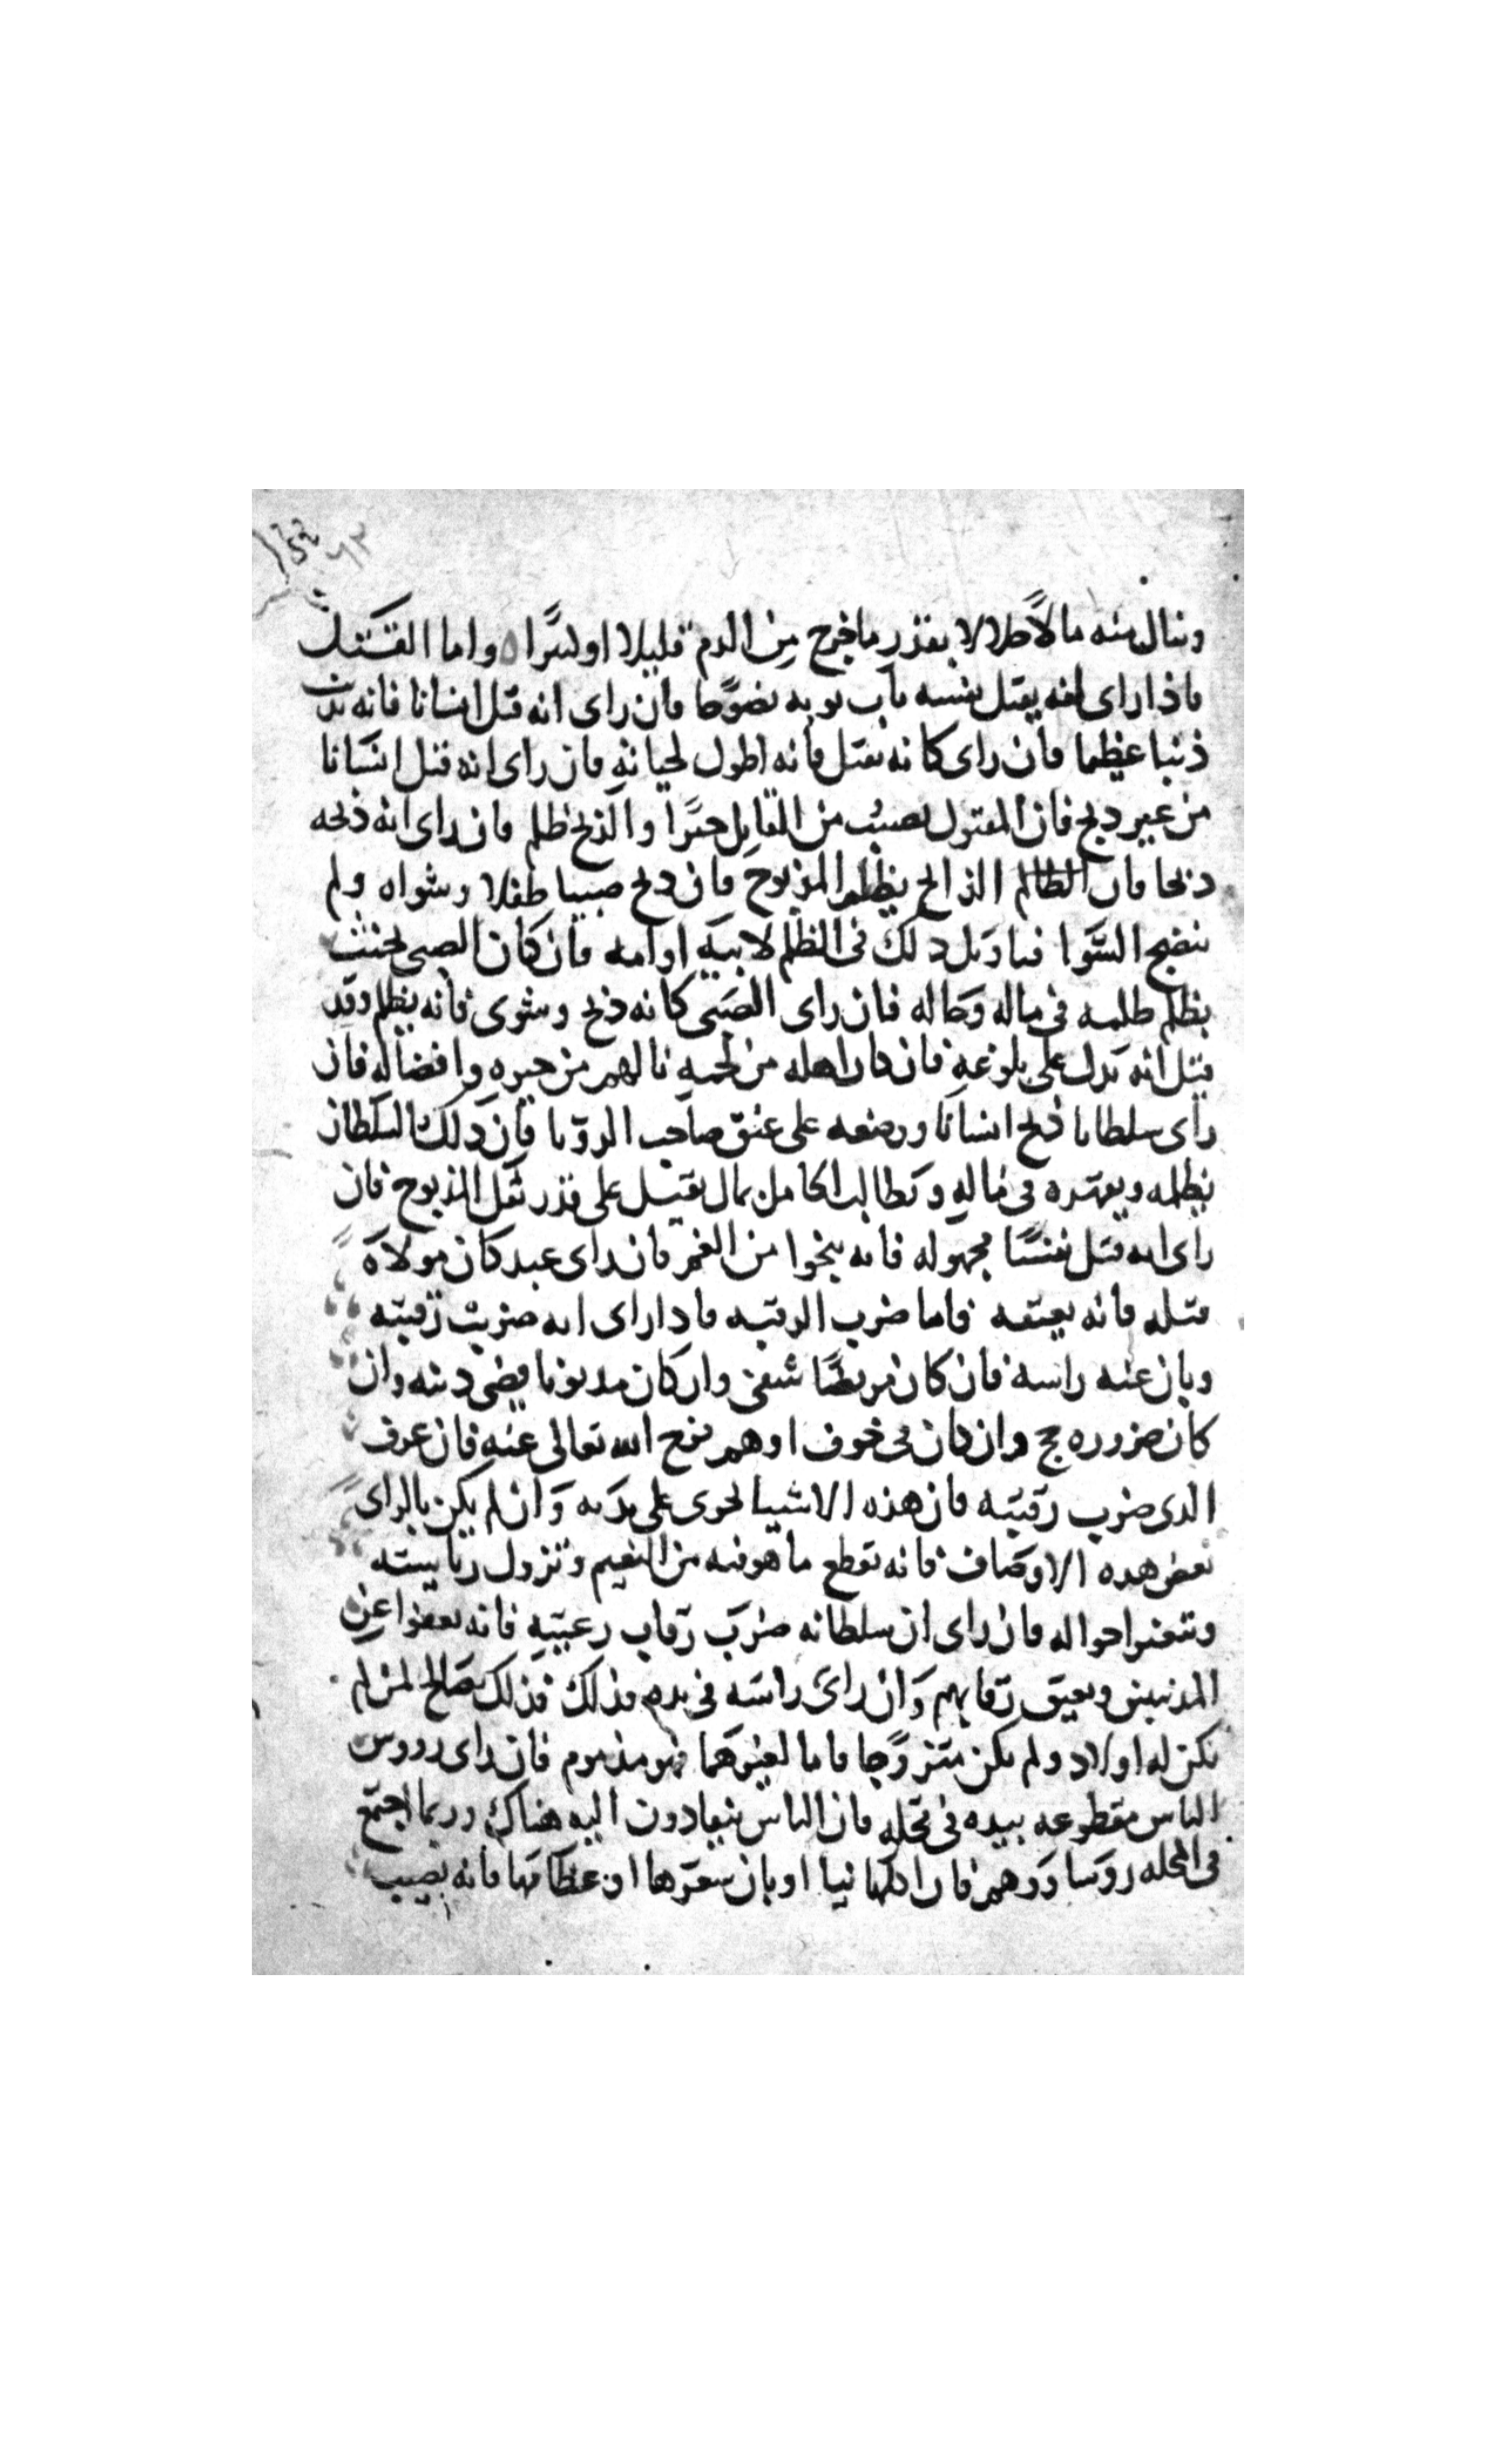 وينال منه مالاً حلالا بقدر ما خرج من الدم قليلا او كثيرا ه واما القتل
فاذا راى انه يقتل نفسه تاب توبه نصوحا فان راى انه قتل انسانا فانه يذنب
ذنبا عظيما فان راى كانه يقتل فانه اطول لحياته فان راى انه قتل انسانا
من غير ذبح فان المقتول يصيب من القاتل خيرا والذبح ظلم فان راى انه ذبحه
ذبحا فان الظالم الذابح يظلم المذبوح فان ذبح صبيا طفلا وشواه ولم
ينضج الشوا فتاويل ذلك فى الظلم لابيه او امه فان كان الصبى
يظلم ظلمه فى ماله وحاله فان راى الصبى كانه ذبح وشوى فانه يظلم وقد
قيل انه يدل على بلوغه فان كان اهله من لحمه نالهم من خيره وافضاله فان
راى سلطانا ذبح انسانا ووضعه على عنق صاحب الرويا فان ذلك السلطان
يظلمه ويقهره فى ماله ويطالب الحامل بمال ثقيل على قدر ثقل المذبوح فان
راى انه قتل نفسًا مجهوله فانه ينجوا من الغم فان راى عبد كان مولاه
قتله فانه يعتقه فاما ضرب الرقبه فاذا راى انه ضربت رقبته
وبان عنه راسه فان كان مريضًا شفى وان كان مديونا قضى دينه وان
كان ضروره حج وان كان فى خوف او هم فرج الله تعالى عنه فان عرف
الذى ضرب رقبته فان هذه الاشيا تجرى على يديه وان لم يكن بالراى
بعض هذه الاوصاف فانه يقطع ما هو فيه من النعيم وتزول رياسته
وتتغير احواله فان راى ان سلطانه ضرب رقاب رعيته فانه يعفوا عن
المذنبين ويعتق رقابهم وان راى راسه فى يده فذلك فذلك صالح لمن لم
يكن له اولاد ولم يكن متزوجا فاما لغيرهما فهو مذموم فان راى رووس
الناس مقطوعه بيده فى محله فان الناس ينقادون اليه هناك وربما اجتمع
فى المحله روسا ودرهم فان اكلها نيا او بان شعرها او عظامها فانه يصيب